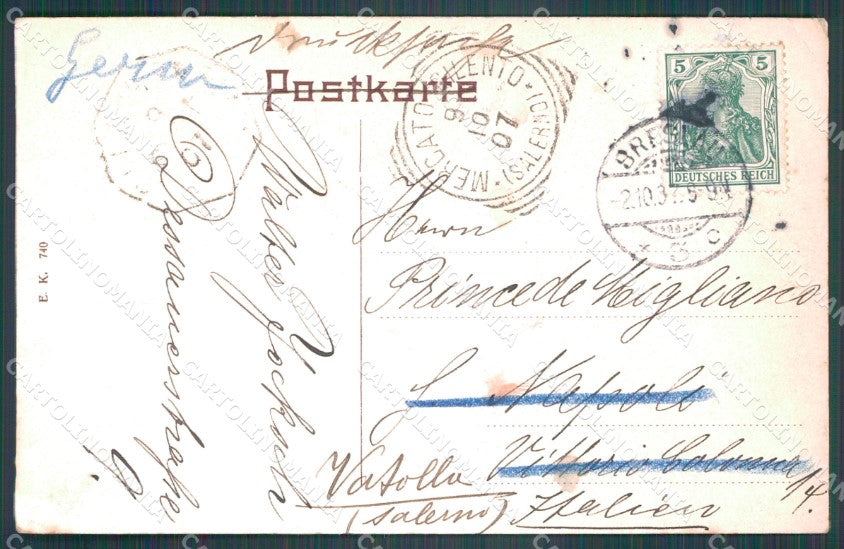 Drucksache
Postkarte
MERCATO CILENTO (SALERNO)
6 10 07
5 5
DEUTSCHES REICH
BRESLAU
-2.10.
* 5 c
Herrn
Principe de Migliano
Napoli
Vittorio Colonna 14.
Vatolla
(Salerno) Italien
Walter
Dessauerstraße
E. K. 740
CARTOLINOMANIA